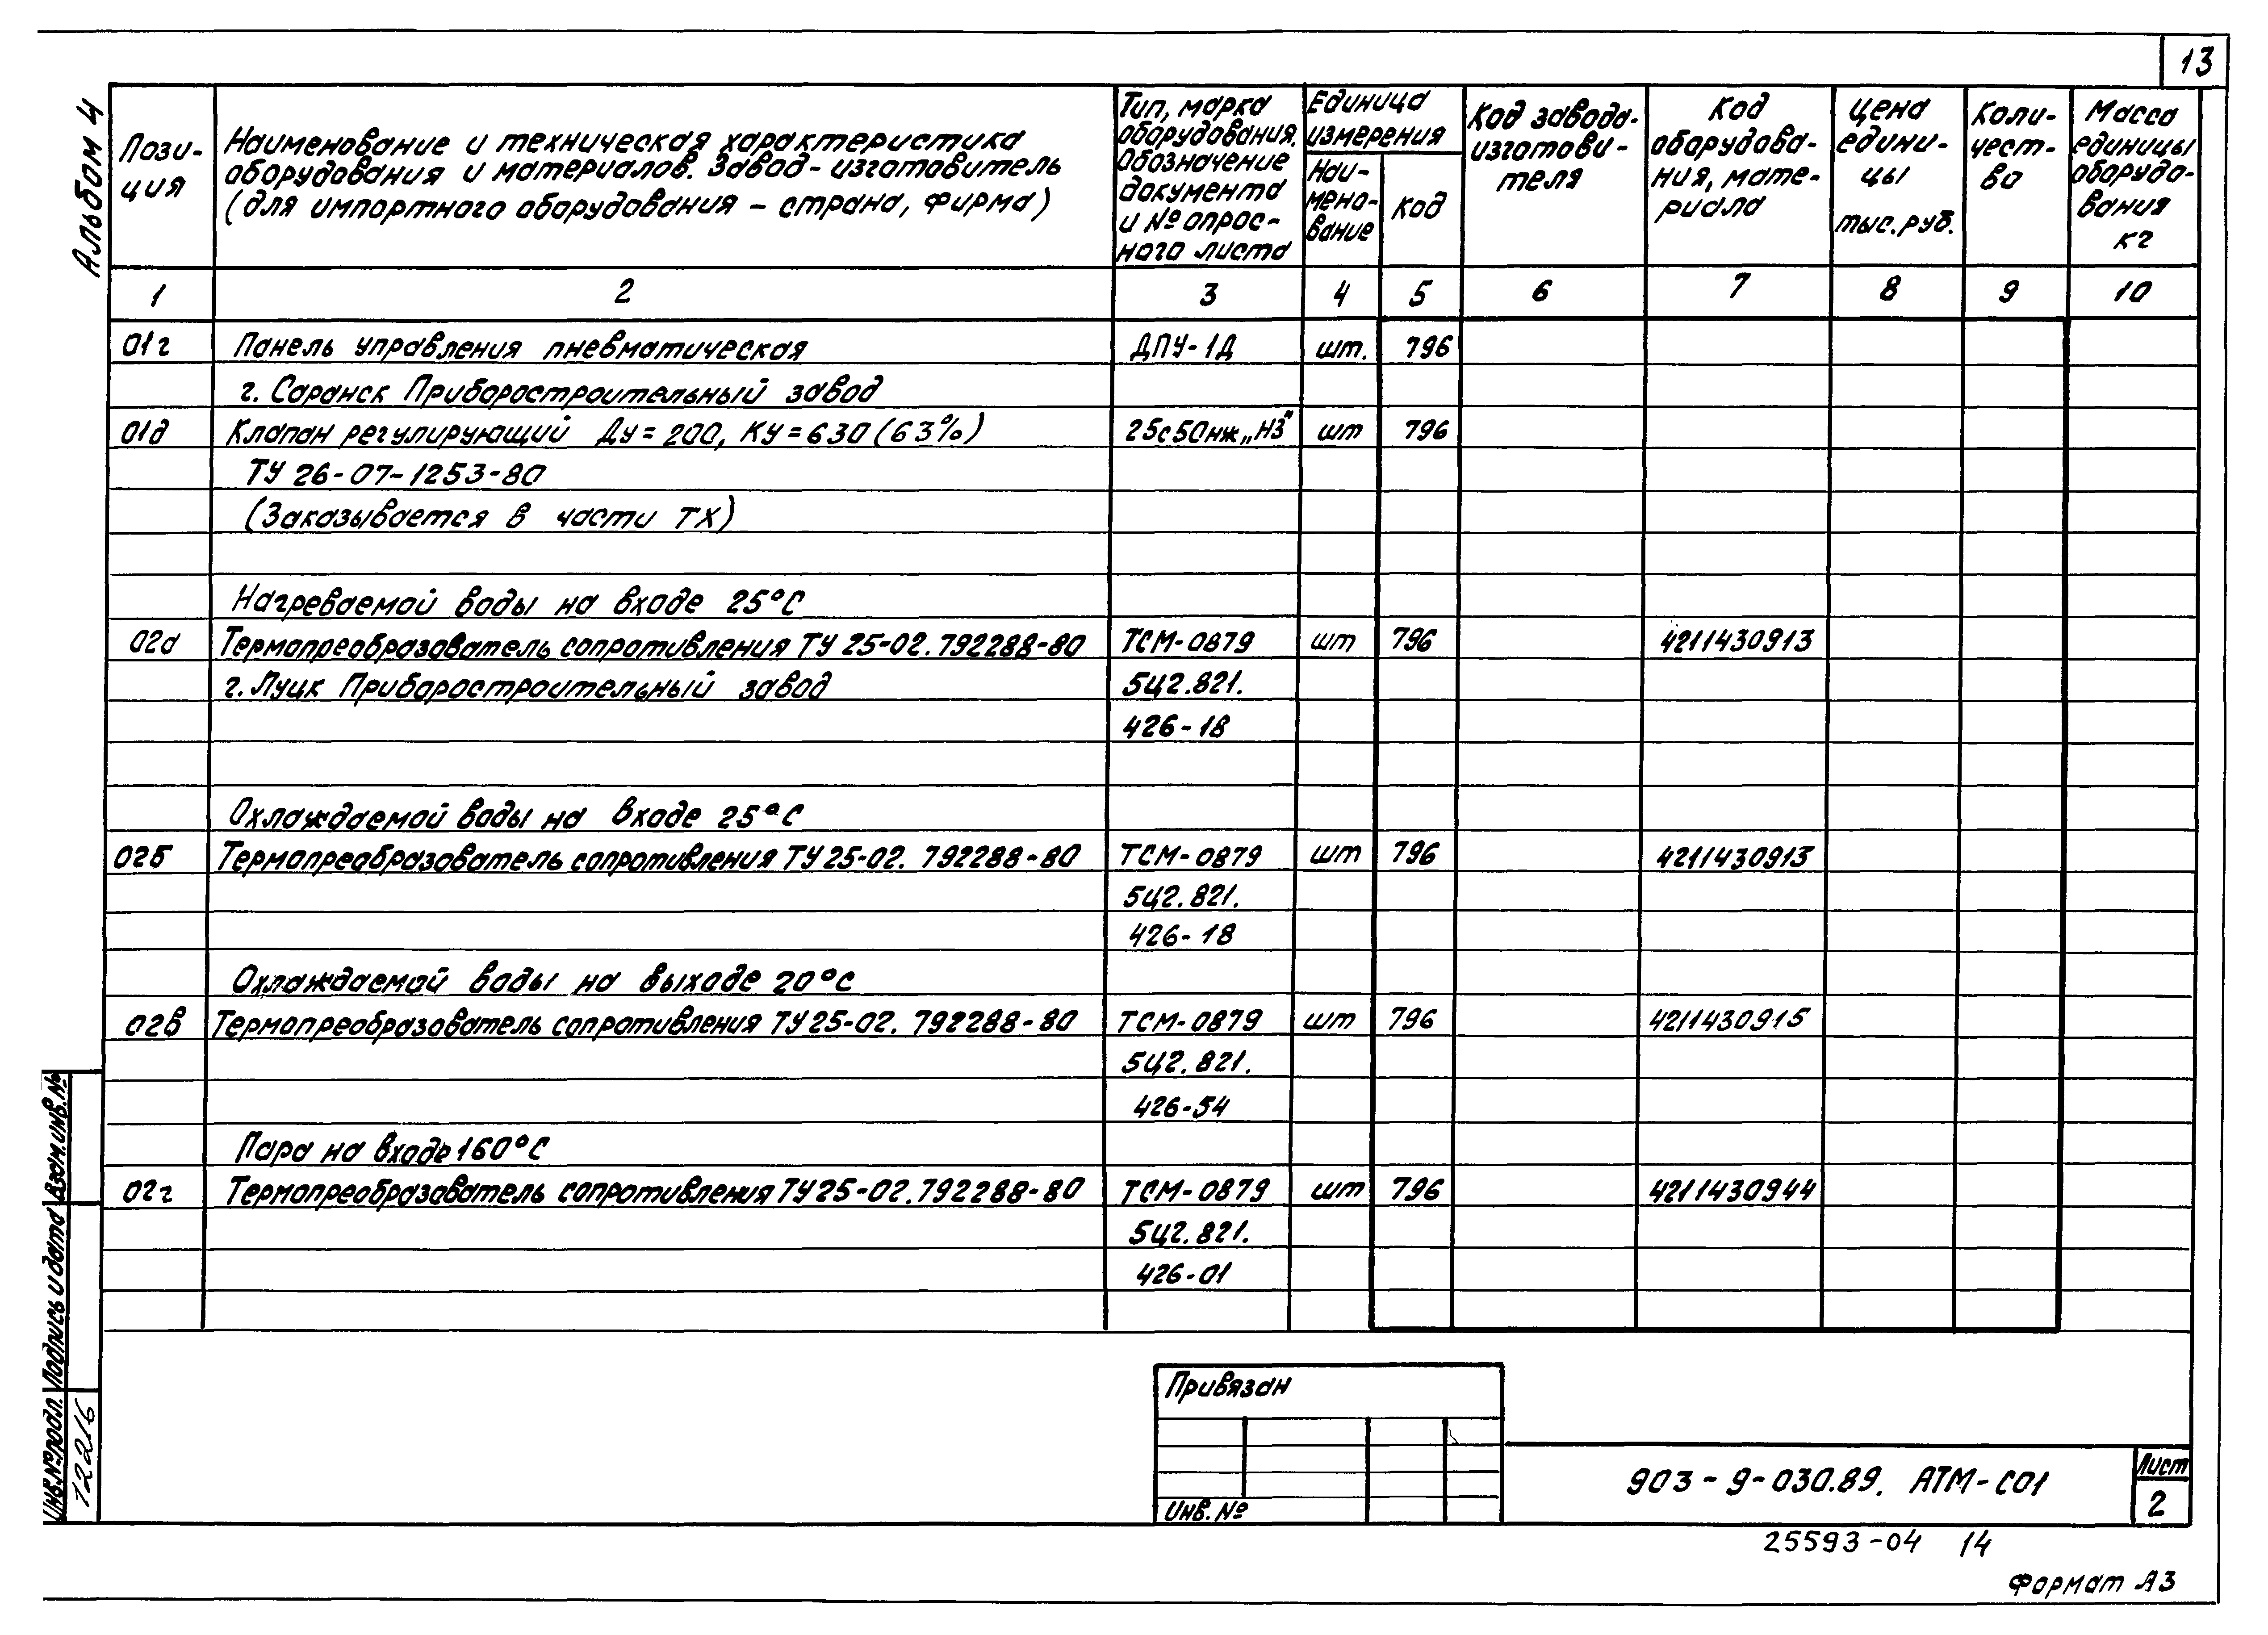 13
Альбом 4
Пози-
ция
Наименование и техническая характеристика
оборудования и материалов. Завод-изготовитель
(для импортного оборудования – страна, фирма)
Тип, марка
оборудования.
Обозначение
документа
и № опрос-
ного листа
Единица
измерения
Наи-
мено-
вание
Код
Код завода-
изготови-
теля
Код
оборудова-
ния, мате-
риала
Цена
едини-
цы
тыс.руб.
Коли-
чест-
во
Масса
единицы
оборудо-
вания
кг
1 2 3 4 5 6 7 8 9 10
01г Панель управления пневматическая ДПУ-1Д шт. 796
г. Саранск Приборостроительный завод
01д Клапан регулирующий Ду=200, Ку=630(63%) 25с50нж„НЗ" шт 796
ТУ 26-07-1253-80
(Заказывается в части ТХ)
Нагреваемой воды на входе 25°С
02а Термопреобразователь сопротивления ТУ 25-02.792288-80 ТСМ-0879 шт 796 4211430913
г. Луцк Приборостроительный завод 5Ц2.821.
426-18
Охлаждаемой воды на входе 25°С
02б Термопреобразователь сопротивления ТУ 25-02. 792288-80 ТСМ-0879 шт 796 4211430913
5Ц2.821.
426-18
Охлаждаемой воды на выходе 20°С
02в Термопреобразователь сопротивления ТУ 25-02. 792288-80 ТСМ-0879 шт 796 4211430915
5Ц2.821.
426-54
Пара на входе 160°С
02г Термопреобразователь сопротивления ТУ 25-02.792288-80 ТСМ-0879 шт 796 4211430944
5Ц2.821.
426-01
Взам.инв.№
Подпись и дата
Инв.№ подл.
12216
Привязан
Инв.№
903-9-030.89. АТМ-С01
Лист
2
25593-04 14
Формат А3